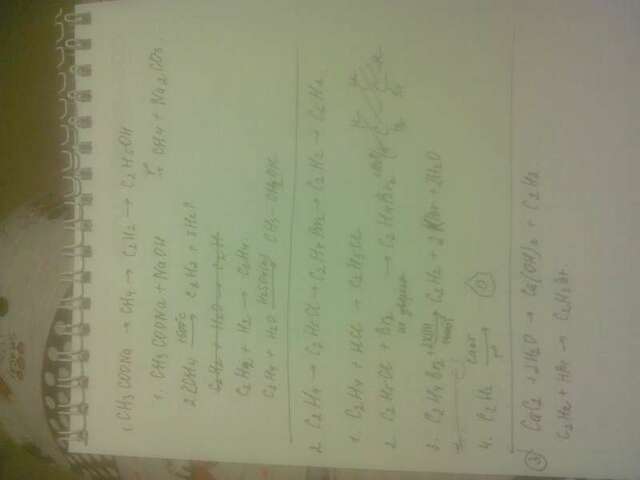 1. CH3COONa → CH4 → C2H2 → C2H5OH
1. CH3COONa + NaOH → CH4 + Na2CO3.
2. 2CH4 1500°C → C2H2 + 3H2
C2H2 + H2 → C2H4
C2H4 + H2O → CH3-CH2OH
2. C2H4 → C2H5Cl → C2H4Br2 → C2H2 →
1. C2H4 + HCl → C2H5Cl
2. C2H5Cl + Br2 → C2H4Br2
3. C2H4Br2 + 2KOH → C2H2 + 2KBr + 2H2O
4. C2H2 →
3 CaC2 + 2H2O → Ca(OH)2 + C2H2
C2H2 + HBr → C2H3Br.